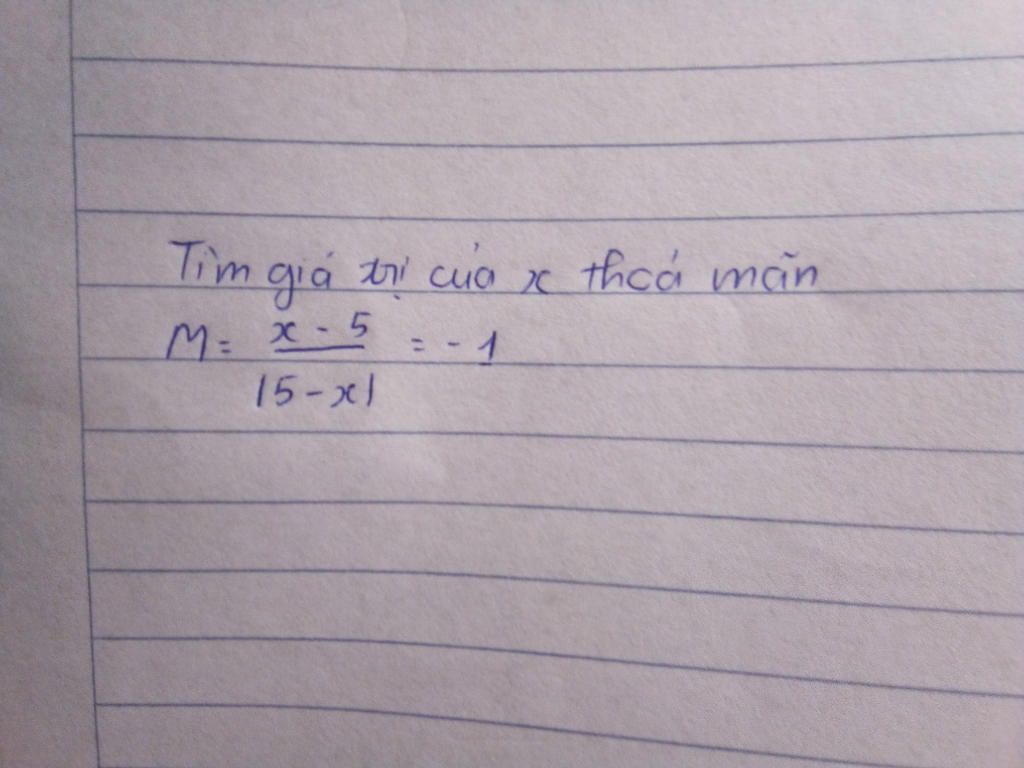 Tìm giá trị của x thoả mãn
M = \frac{x - 5}{|5 - x|} = - 1